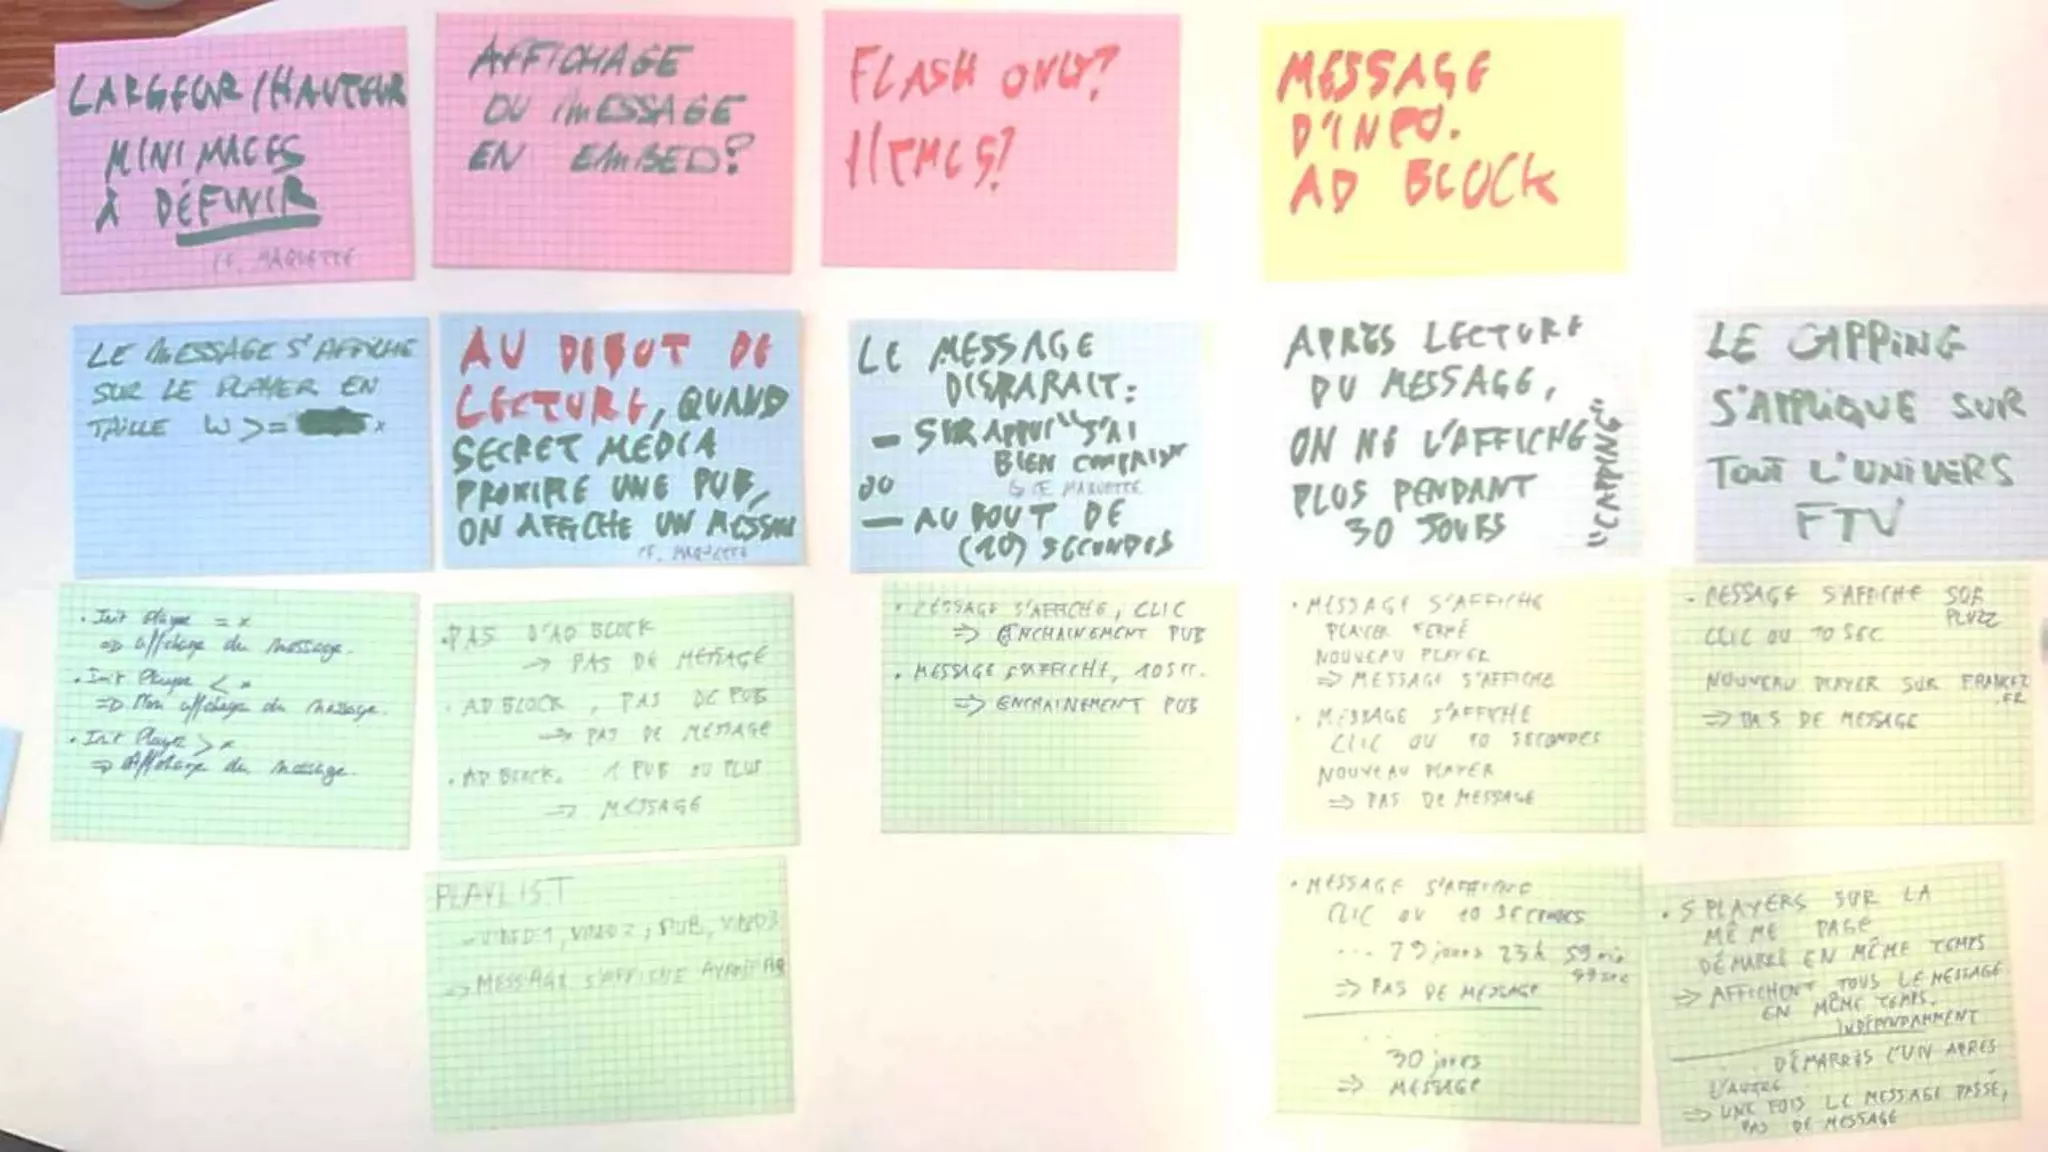 LARGEUR/HAUTEUR
MINIMALES
À DÉFINIR
CF. MAQUETTE
AFFICHAGE
DU MESSAGE
EN EMBED?
FLASH ONLY?
HTML5?
MESSAGE
D'INFO.
AD BLOCK
LE MESSAGE S'AFFICHE
SUR LE PLAYER EN
TAILLE W >= x
AU DEBUT DE
LECTURE, QUAND
SECRET MEDIA
PROXIFIE UNE PUB,
ON AFFICHE UN MESSAGE
CF. MAQUETTE
LE MESSAGE
DISPARAIT:
- SUR APPUI "J'AI
BIEN COMPRIS"
CF. MAQUETTE
OU
- AU BOUT DE
(10) SECONDES
APRÈS LECTURE
DU MESSAGE,
ON NE L'AFFICHE
PLUS PENDANT
30 JOURS
"CAPPING"
LE CAPPING
S'APPLIQUE SUR
TOUT L'UNIVERS
FTV
• Init Player = x
⇒ affichage du message.
• Init Player < x
⇒ Non affichage du message.
• Init Player > x
⇒ Affichage du message.
• PAS D'AD BLOCK
→ PAS DE MESSAGE
• AD BLOCK, PAS DE PUB
⇒ PAS DE MESSAGE
• AD BLOCK. 1 PUB OU PLUS
⇒ MESSAGE
• MESSAGE S'AFFICHE, CLIC
⇒ ENCHAINEMENT PUB
• MESSAGE S'AFFICHE, 10 SEC.
⇒ ENCHAINEMENT PUB
• MESSAGE S'AFFICHE
PLAYER FERMÉ
NOUVEAU PLAYER
⇒ MESSAGE S'AFFICHE
• MESSAGE S'AFFICHE
CLIC OU 10 SECONDES
NOUVEAU PLAYER
⇒ PAS DE MESSAGE
• MESSAGE S'AFFICHE SUR
PLUZZ
CLIC OU 10 SEC
NOUVEAU PLAYER SUR FRANCE2
.FR
⇒ PAS DE MESSAGE
PLAYLIST
- VIDEO 1, VIDEO 2, PUB, VIDEO 3
⇒ MESSAGE S'AFFICHE AVANT
• MESSAGE S'AFFICHE
CLIC OU 10 SECONDES
... 29 jours 23h 59 min
59 sec
⇒ PAS DE MESSAGE
30 jours
⇒ MESSAGE
• 5 PLAYERS SUR LA
MÊME PAGE
DÉMARRÉ EN MÊME TEMPS
⇒ AFFICHENT TOUS LE MESSAGE
EN MÊME TEMPS.
INDÉPENDAMMENT
DÉMARRÉS L'UN APRÈS
L'AUTRE
⇒ UNE FOIS LE MESSAGE PASSÉ,
PAS DE MESSAGE